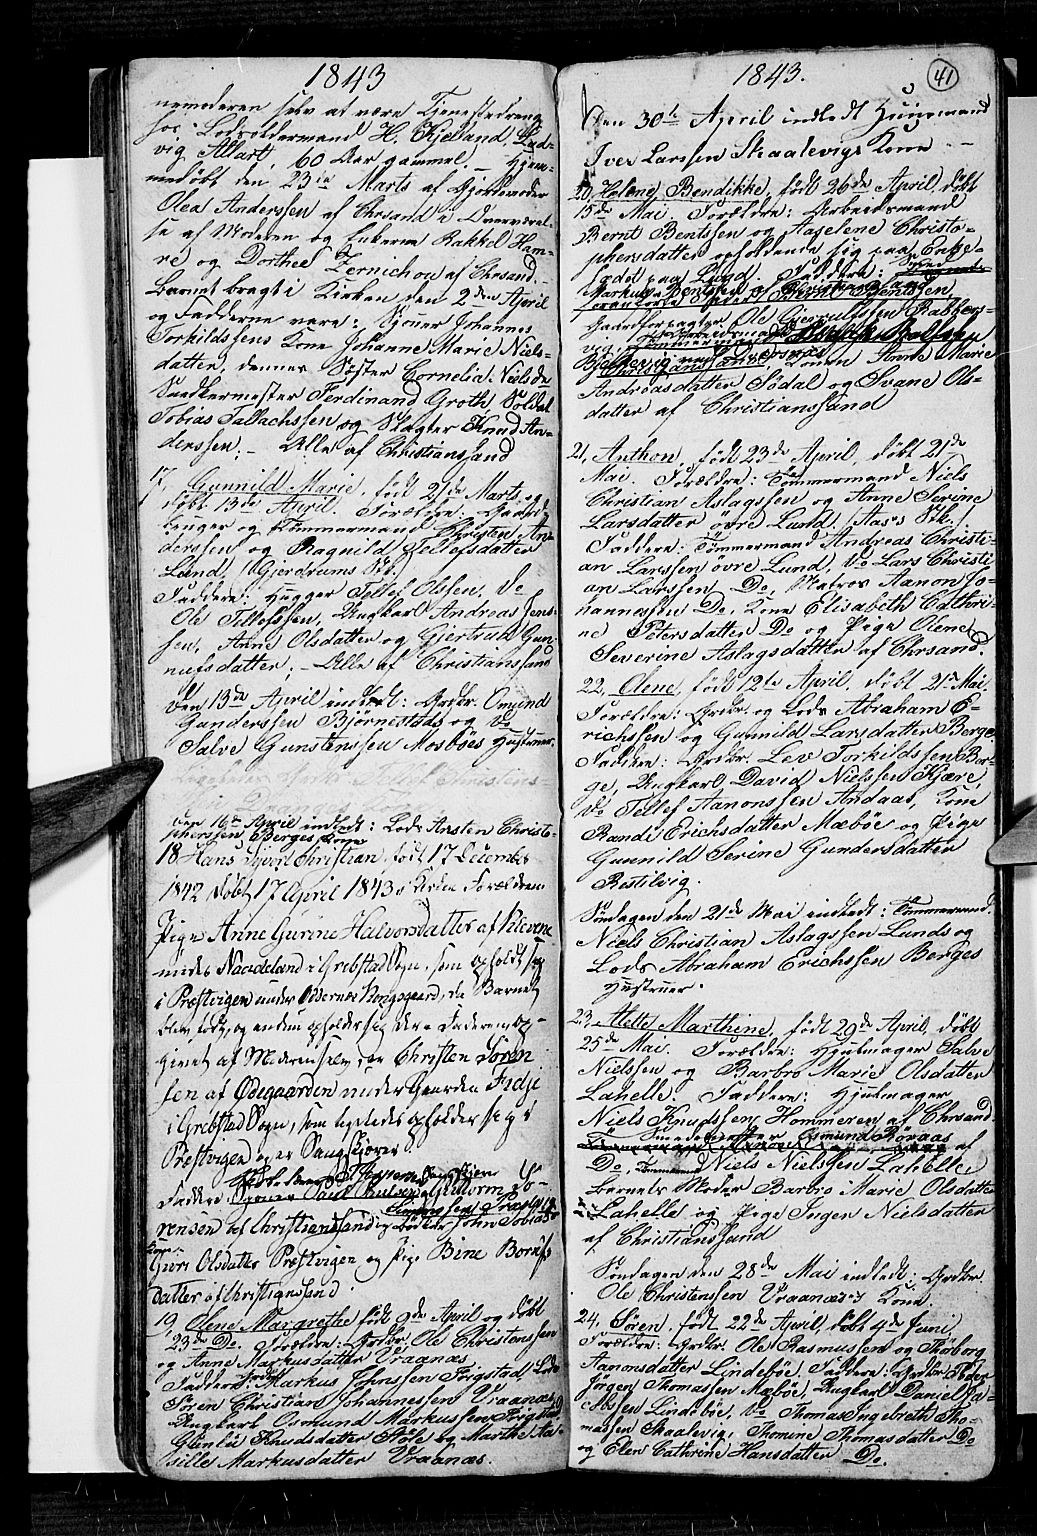 1843
nemoderen selv at være Tjenestedreng
hos Lodsoldermand H. Kjelland, Lud-
vig Allart, 60 Aar gammel. – Hjem-
medøbt den 23de Marts af Gjordemoder
Olea Anderssen af Chrsand i Overværel-
se af Moderen og Enkerne Rakkel Ham-
re og Dorthea Zernichou af Chrsand. –
Barnet bragt i Kirken den 2den April
og Fadderne vare: Skoner Johannes
Torkildssens Kone Johanne Marie Niels-
datter, dennes Søster Cornelia Nielsdr
Snedkermester Ferdinand Groth Soldat
Tobias Tallachssen og Slagter Knud An-
derssen; – Alle af Christianssand
17, Gunnild Marie, født 21de Marts og
døbt 13de April. Forældre: Gaard-
bruger og Tømmermand Christen An-
derssen og Ragnild Tellefsdatter
Lund, (Gjerdrums Stk.)
Faddere: Hugger Tellef Olssen, Do
Ole Tellefssen, Ungkarl Andreas Jens-
sen, Anne Olsdatter og Gjertrud Gun-
nufsdatter; – Alle af Christianssand
Den 13de April indledt: Grdbr. Omund
Gunderssen Bjørnestads og Do
Salve Gunstenssen Mosbøes Hustruer.
Den 16de April indledt: Lods Ansten Christo-
pherssen Berges Kone
18, Hans Sivert Christian, født 17 December
1842 døbt 17 April 1843
Pige Anne Gurine Halvorsdatter af Klevene
under Naadeland i Grebstad Sogn, som opholdt sig
i Præstvigen under Oddernes Kongsgaard, da Barnet
blev født, og endnu opholder sig der. Faderen op-
givet af Moderen selv er Christen Søren
sen af Ødegaarden under Gaarden Fidje
i Grebstad Sogn, som ligeledes opholder sig i
Præstvigen og er Saugskjører.
Guri Olsdatter Præstvigen og Pige Bine Børufs
datter af Christianssand.
19, Olene Margrethe født 9de April og døbt
23de Do. Forældre: Grdbr. Ole Christenssen
og Anne Markusdatter Vraanæs.
Faddere: Grdbr. Markus Johnssen Frigstad, Lods
Søren Christian Johannessen Vraanæs,
Ungkarl Osmund Markussen Frigstad
Gunlø Knudsdatter Støle og Marthe Aa-
sille Markusdatter Vraanæs.
1843.
41
Den 30te April indledt Huusmand
Iver Larssen Skaalevigs Kone
20, Helene Bendikke, født 26de April, døbt
15de Mai. Forældre: Arbeidsmand
Bernt Bentssen og Aaselene Christo-
phersdatter opholdende sig paa Enke-
sædet paa Lund. Faddere:
Gaardforpagter Ole Gjerulfssen Rabbers-
vig
Konen Anne Marie
Andreasdatter Sødal og Svane Ols-
datter af Christianssand
21, Anthon, født 23de April, døbt 21de
Mai. Forældre: Tømmermand Niels
Christian Aslagssen og Anne Serine
Larsdatter øvre Lund, (Aas's Stk.)
Faddere: Tømmermand Andreas Christi-
an Larssen øvre Lund, Do Lars Christi-
an Larssen Do, Matros Aanon Jo-
hannessen Do, Kone Elisabeth Cathri-
ne Petersdatter Do og Pige Olene
Severine Aslagsdatter af Chrsand.
22, Olene, født 12te April, døbt 21de Mai.
Forældre: Grdbr. og Lods Abraham E-
richssen og Gunnild Larsdatter Berge.
Faddere: Grdbr. Lev Torkildssen Ber-
ge, Ungkarl David Nielssen Kjære,
Do Tellef Aanonssen Andaas, Kone
Randi Erichsdatter Mæbøe og Pige
Gunnild Serine Gundersdatter
Restilvig.
Søndagen den 21de Mai indledt: Tømmermand
Niels Christian Aslagssen Lunds og
Lods Abraham Erichssen Berges
Hustruer.
23, Alette Marthine, født 29de April, døbt
25de Mai. Forældre: Hjulmager Salve
Nielssen og Barbro Marie Olsdatter
Lahelle. Faddere: Hjulmager
Niels Knudssen Hommeren af Chrsand
Smedemester Osmund Røraas af
Do, Tømmermand Niels Nielssen Lahelle,
Barnets Moder Barbro Marie Olsdatter
Lahelle og Pige Inger Nielsdatter
af Christianssand
Søndagen den 28de Mai indledt: Grdbr.
Ole Christenssen Vraanæs's Kone
24, Søren, født 22de April, døbt 4de Juni,
Forældre: Grdbr. Ole Rasmussen og Thorborg
Aanonsdatter Lindebøe. Faddere: Grdbr. Peder
Jørgen Thomassen Mæbøe, Ungkarl Daniel Ja-
cobsen Lindebøe, Do Thomas Ingebreth Tho-
massen Skaalevig, Thomine Thomasdatter Do
og Elen Cathrine Hansdatter Do.